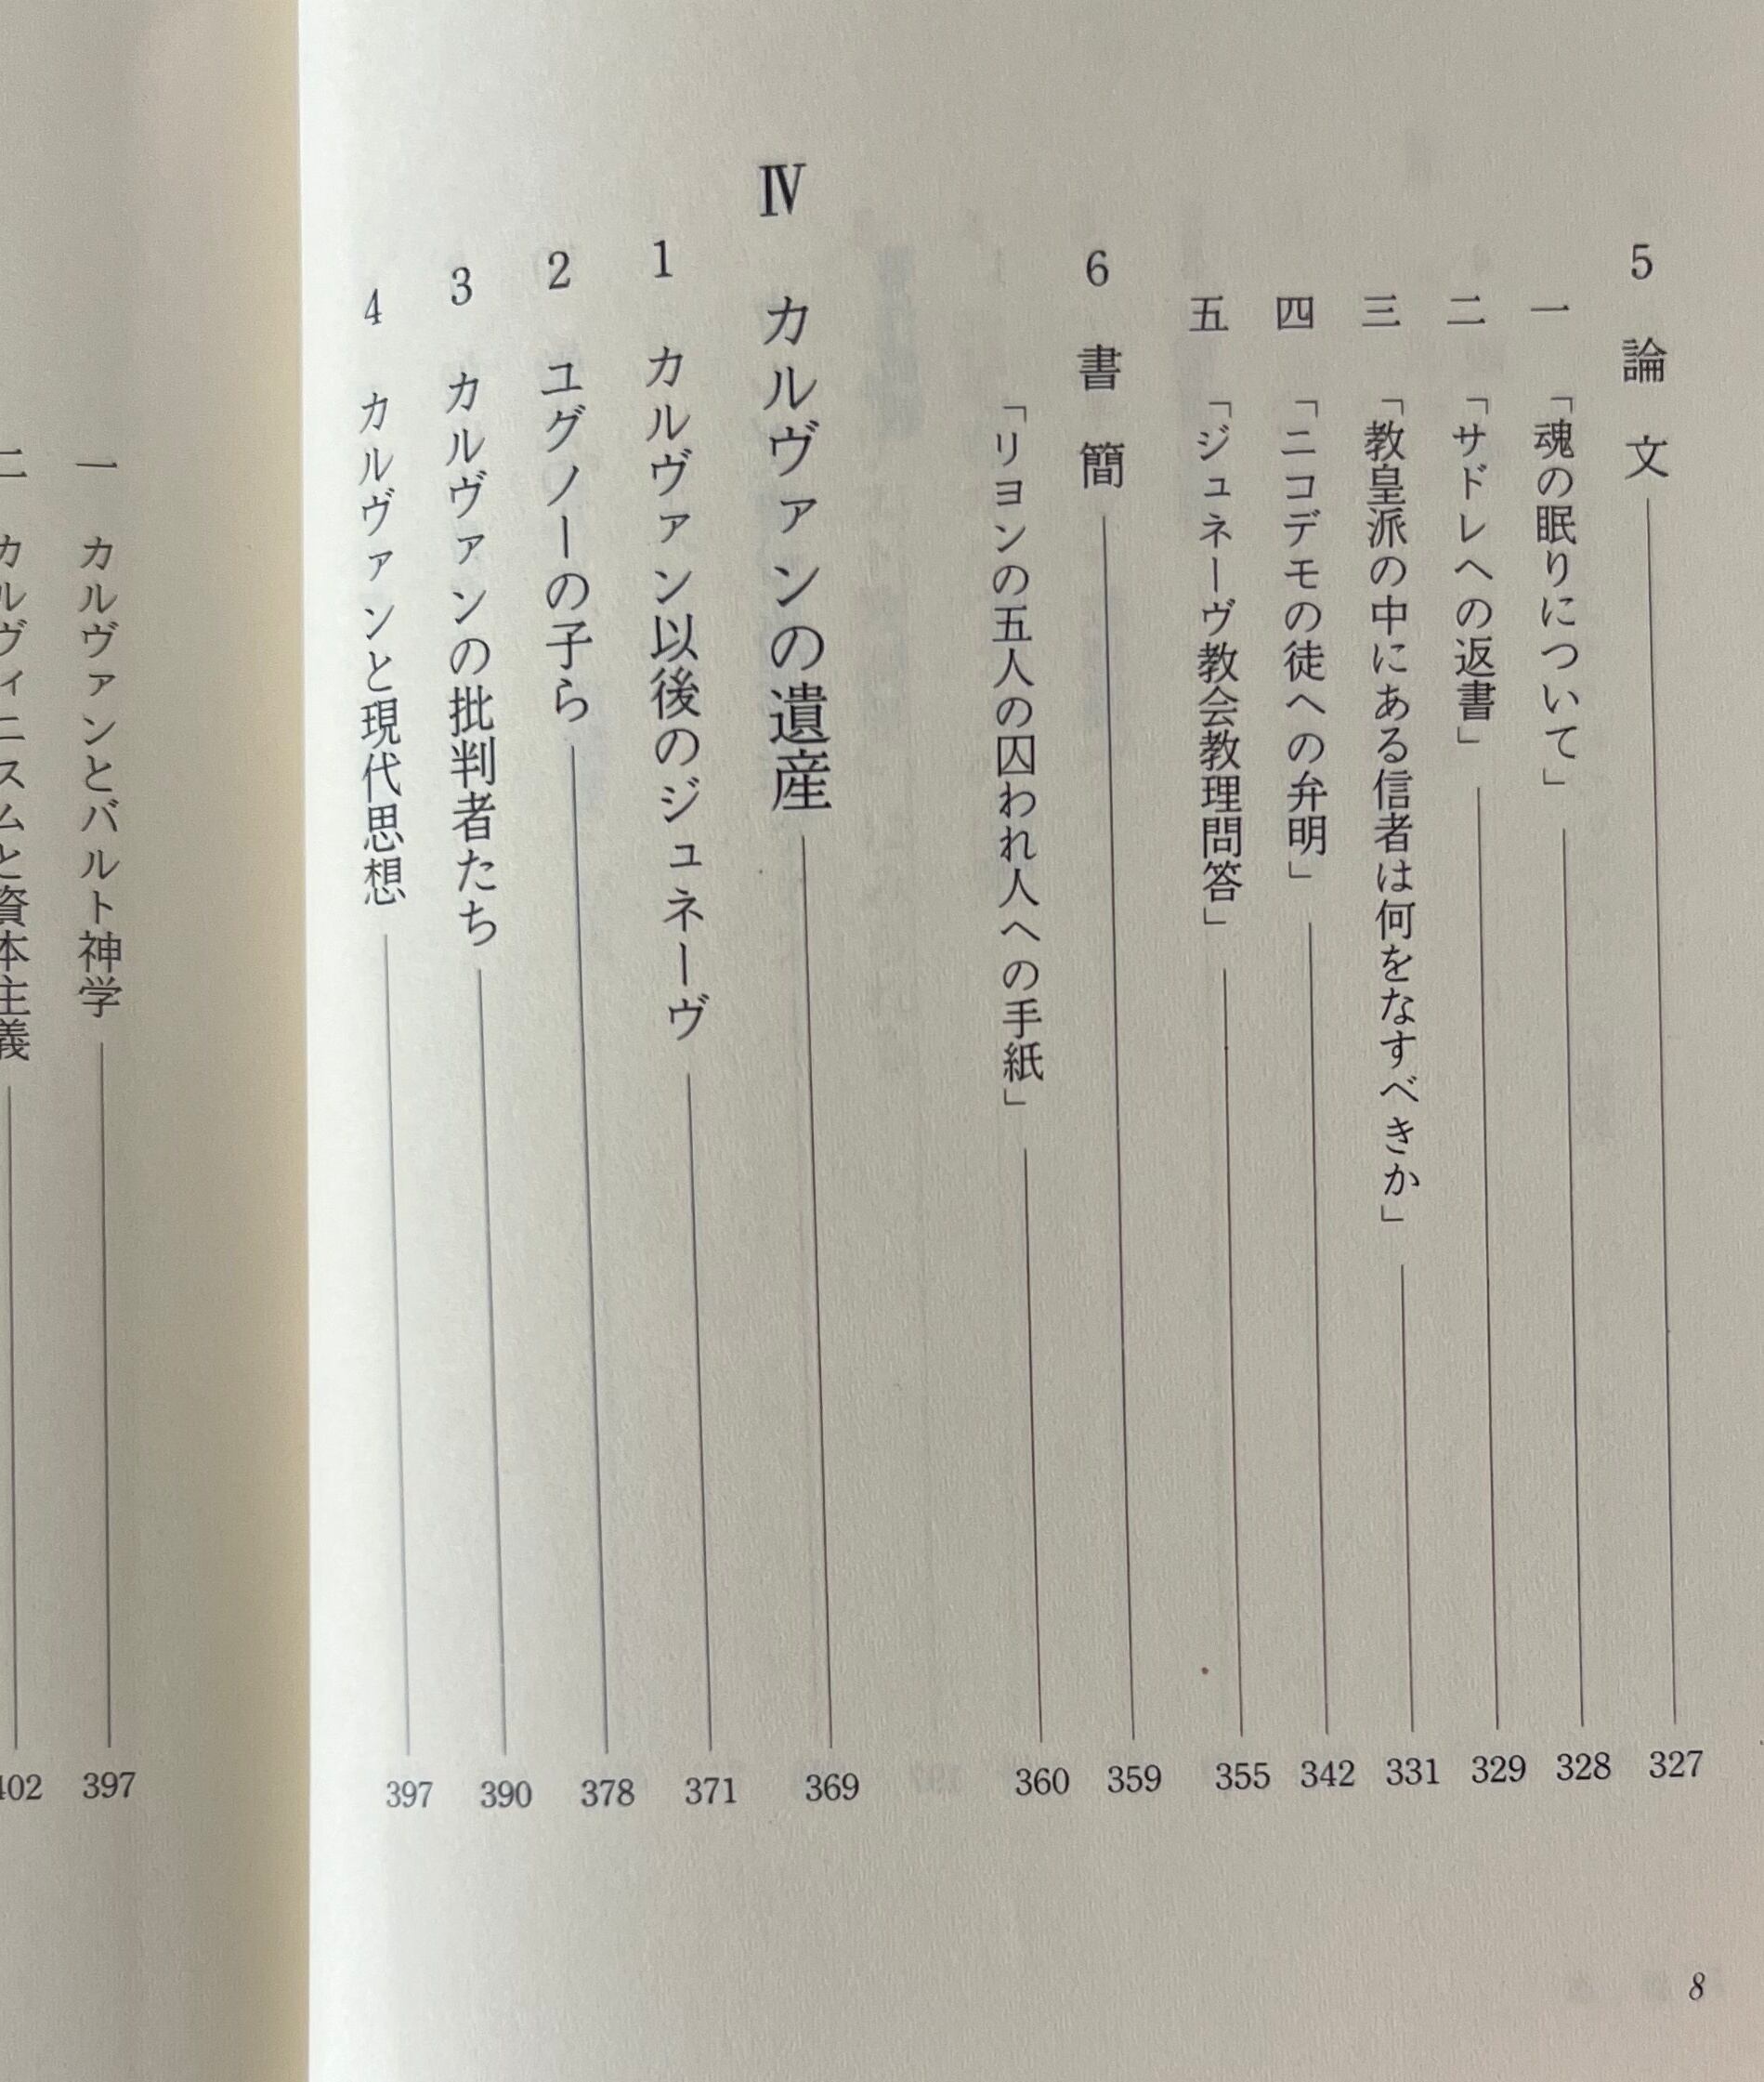 5 論文 327
一 「魂の眠りについて」 328
二 「サドレへの返書」 329
三 「教皇派の中にある信者は何をなすべきか」 331
四 「ニコデモの徒への弁明」 342
五 「ジュネーヴ教会教理問答」 355
6 書簡 359
「リヨンの五人の囚われ人への手紙」 360
Ⅳ カルヴァンの遺産 369
1 カルヴァン以後のジュネーヴ 371
2 ユグノーの子ら 378
3 カルヴァンの批判者たち 390
4 カルヴァンと現代思想 397
8
一 カルヴァンとバルト神学 397
二 カルヴィニスムと資本主義 402